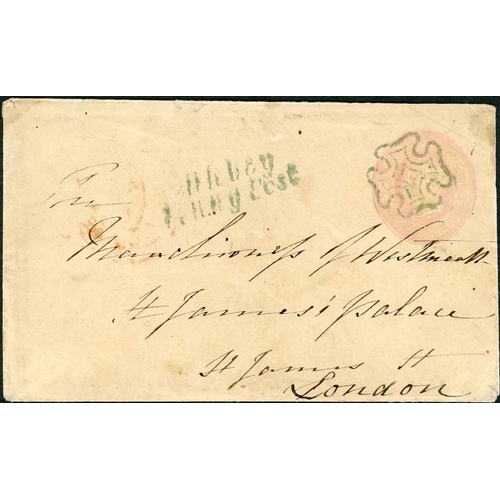 Penny Post
The
Marchioness of Westmeath
St James' palace
St James St
London